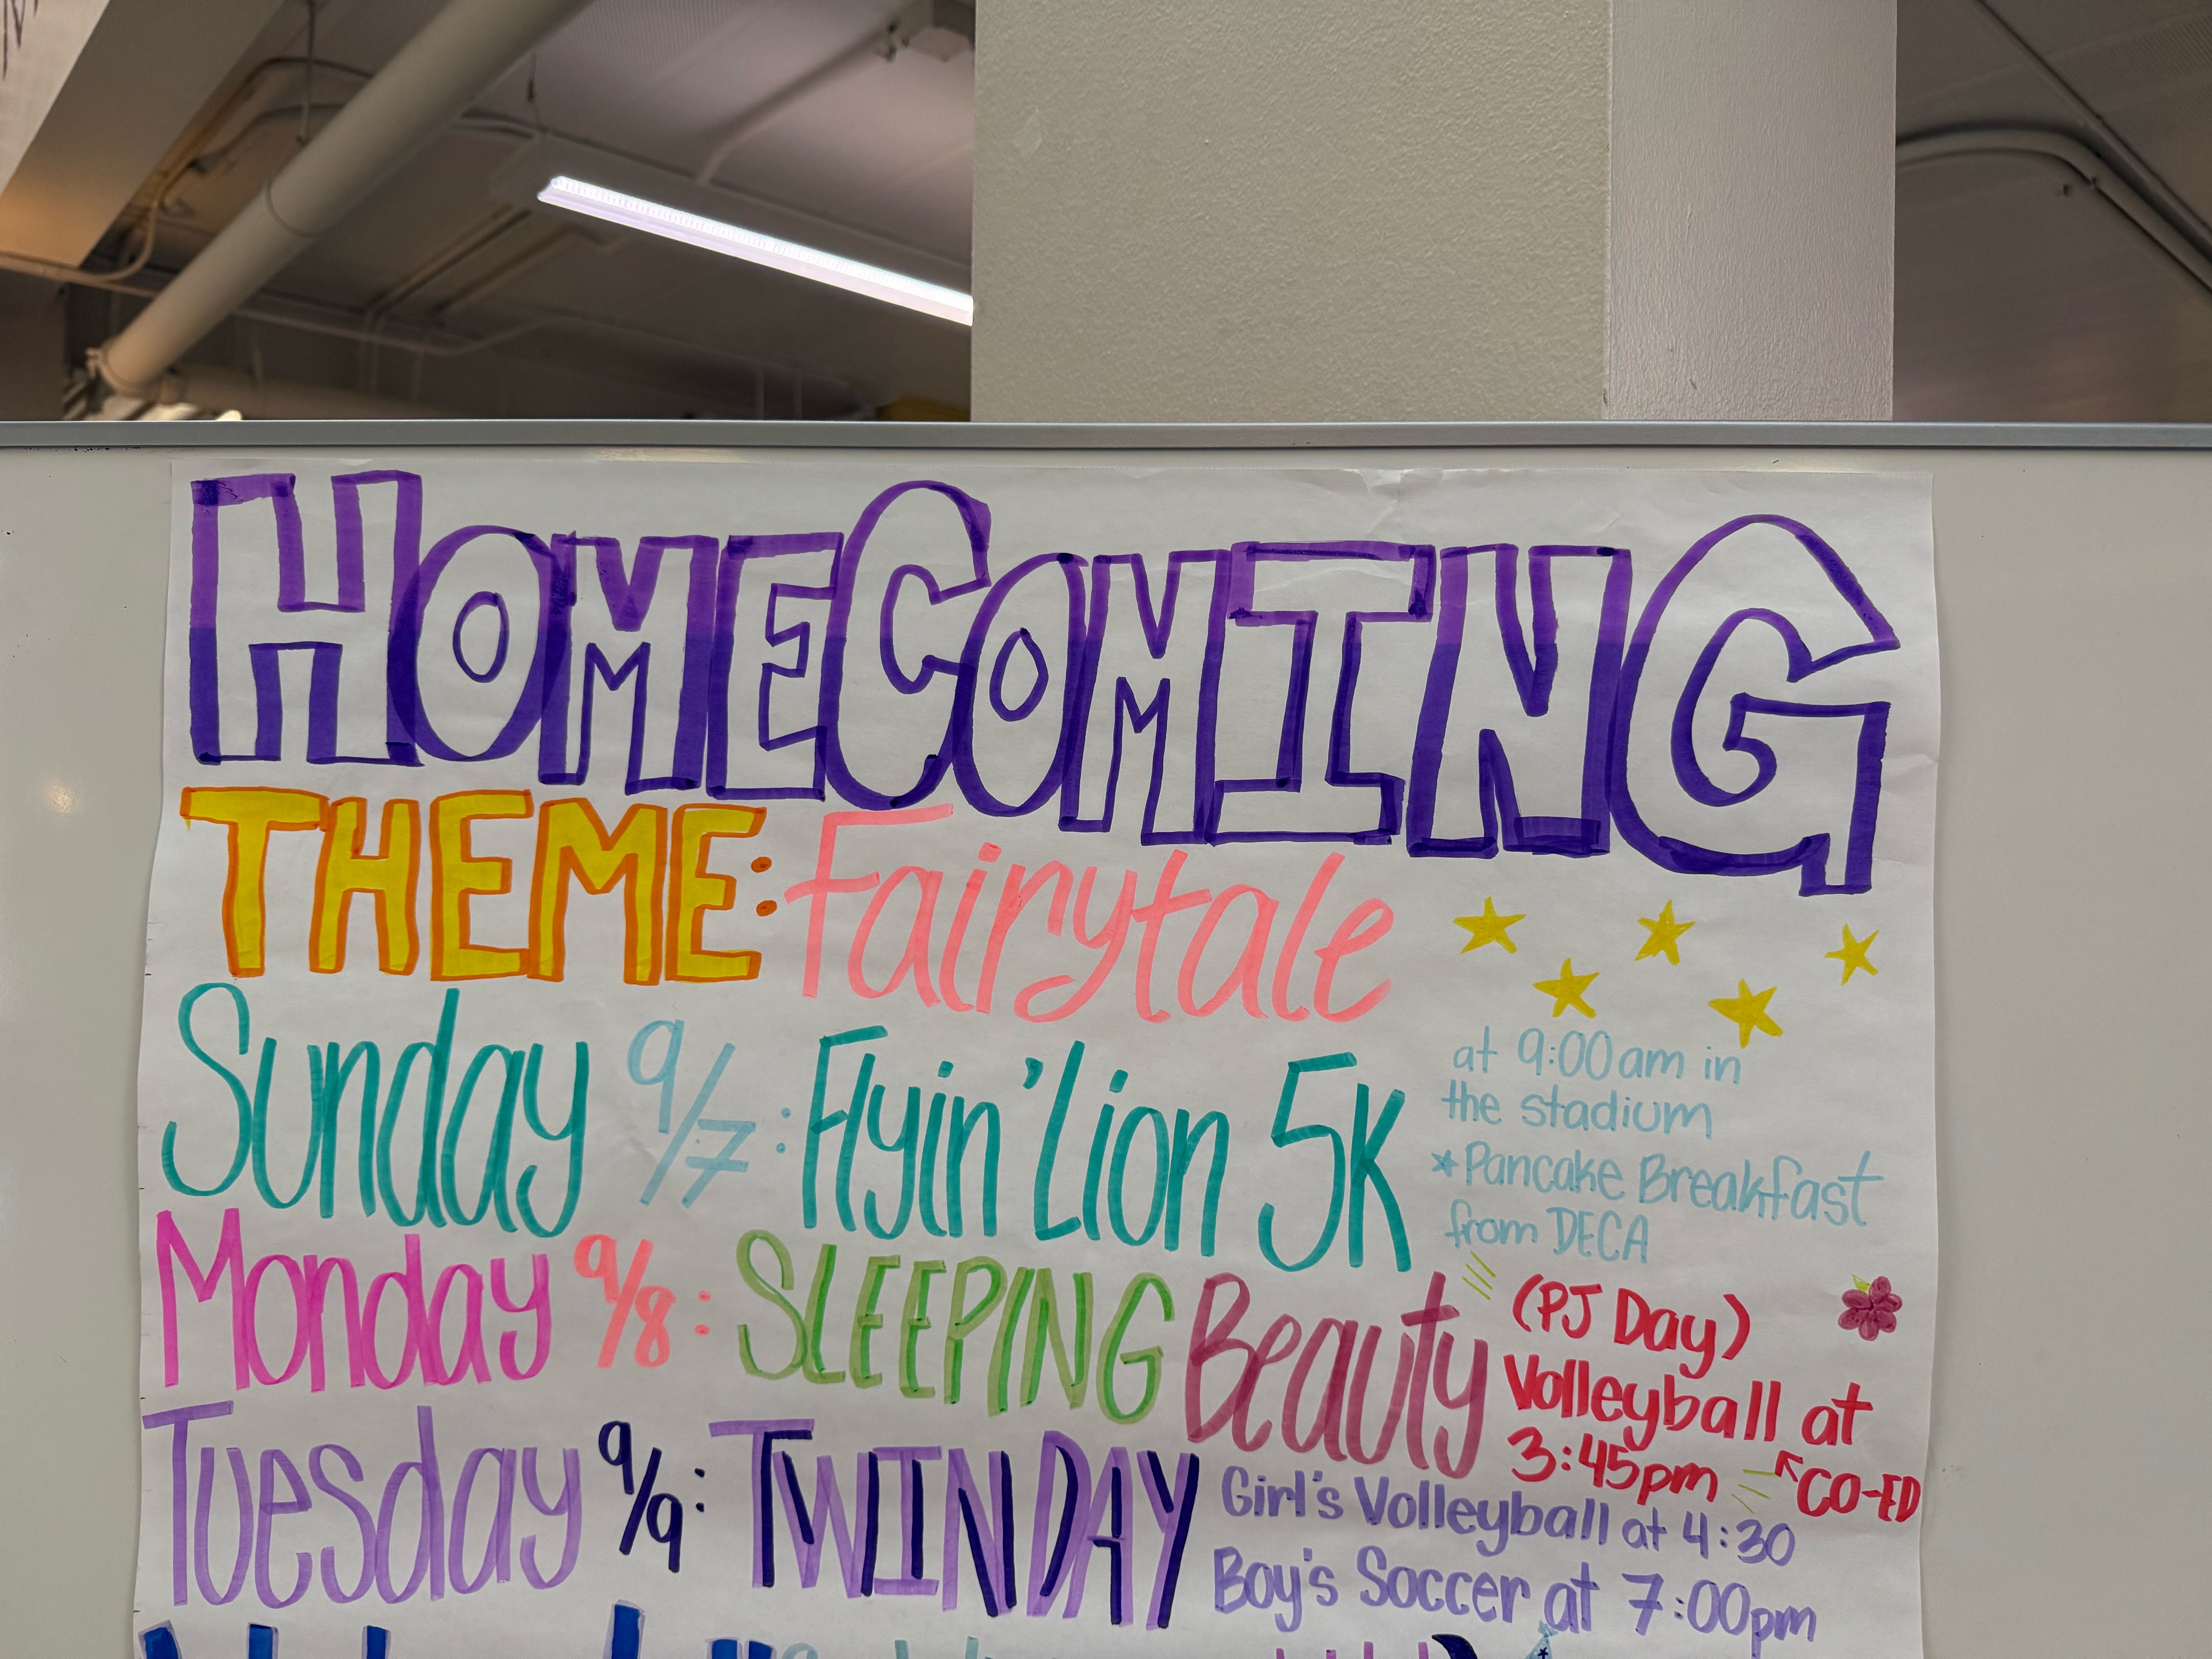 HOMECOMING
THEME: Fairytale
Sunday 9/7: Flyin' Lion 5K
at 9:00am in
the stadium
*Pancake Breakfast
from DECA
Monday 9/8: SLEEPING Beauty
(PJ Day)
Volleyball at
3:45pm
CO-ED
Tuesday 9/9: TWIN DAY
Girl's Volleyball at 4:30
Boy's Soccer at 7:00pm